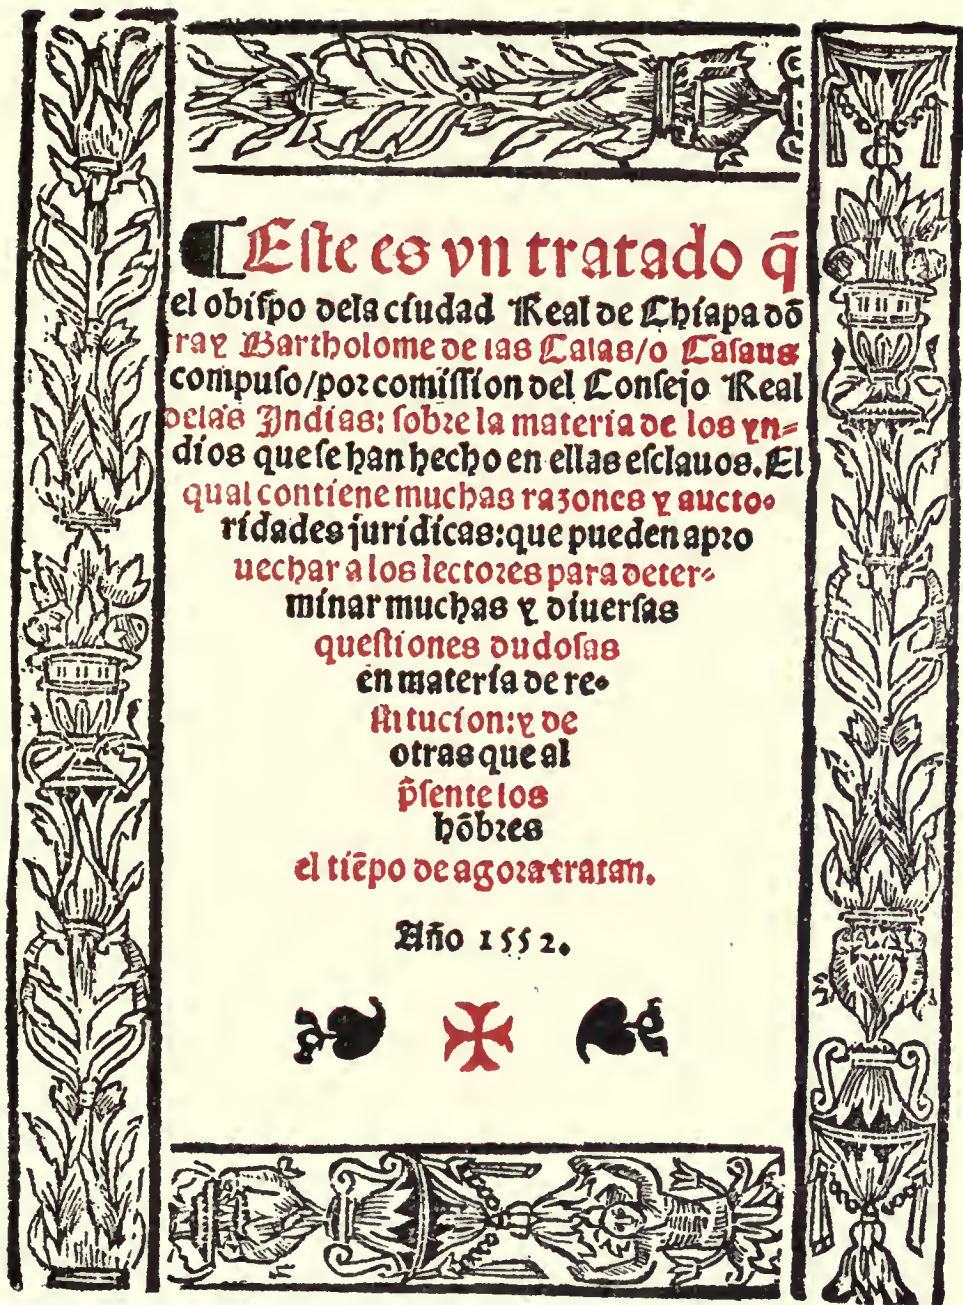 ¶Eſte es vn tratado q̄
el obiſpo dela ciudad Real de Chiapa dō
fray Bartholome de las Caſas/o Caſaus
compuſo/por comiſſion del Conſejo Real
delas Indias: ſobre la materia de los yn=
dios que ſe han hecho en ellas eſclauos. El
qual contiene muchas razones y aucto-
ridades juridicas: que pueden apro
uechar a los lectores para deter-
minar muchas y diuerſas
queſtiones dudoſas
en materia de re-
ſtitucion: y de
otras que al
p̄ſente los
hōbres
el tiēpo de agora tratan.
Año 1552.